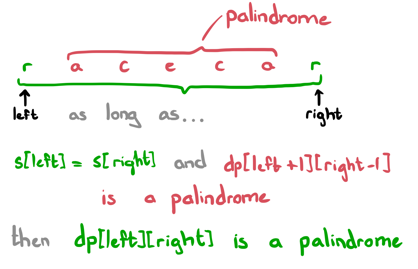 palindrome
r a c e c a r
left as long as... right
s[left] = s[right] and dp[left+1][right-1]
is a palindrome
then dp[left][right] is a palindrome